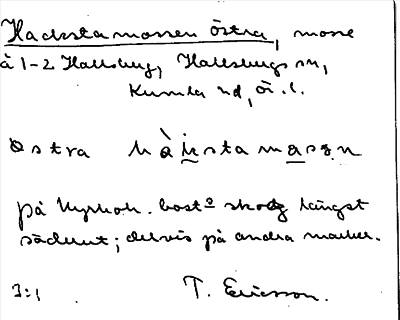 Hacksta mossen östra, mosse
å 1-2 Hallsberg, Hallsbergs sn,
Kumla hd, ör. l.
östra hàksta masen
på Kyrkoh. bost⁰ skog längst
söderut; delvis på andra marker.
3:1 T. Ericsson.